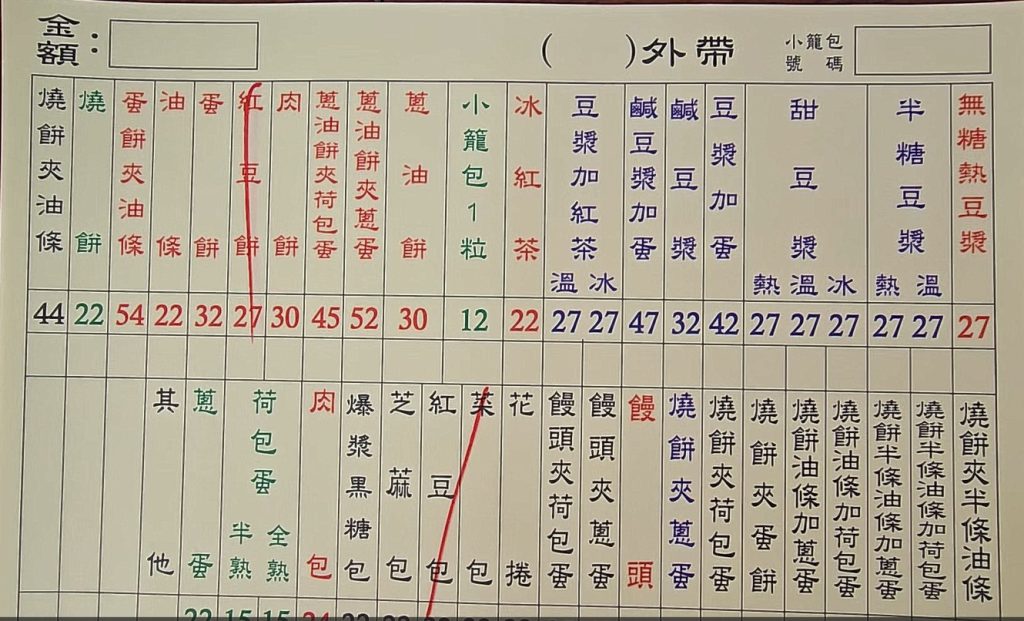 金額：
(　　)外帶
小籠包
號碼
無糖熱豆漿
半糖豆漿
熱 溫
甜豆漿
熱 溫 冰
豆漿加蛋
鹹豆漿
鹹豆漿加蛋
豆漿加紅茶
溫 冰
冰紅茶
小籠包1粒
蔥油餅
蔥油餅夾蔥蛋
蔥油餅夾荷包蛋
肉餅
紅豆餅
蛋餅
油條
蛋餅夾油條
燒餅
燒餅夾油條
44 22 54 22 32 27 30 45 52 30 12 22 27 27 47 32 42 27 27 27 27 27 27
燒餅夾半條油條
燒餅半條油條加荷包蛋
燒餅半條油條加蔥蛋
燒餅油條加荷包蛋
燒餅油條加蔥蛋
燒餅夾蛋餅
燒餅夾荷包蛋
燒餅夾蔥蛋
饅頭
饅頭夾蔥蛋
饅頭夾荷包蛋
花捲
菜包
紅豆包
芝麻包
爆漿黑糖包
肉包
荷包蛋
半熟 全熟
蔥蛋
其他
22 15 15